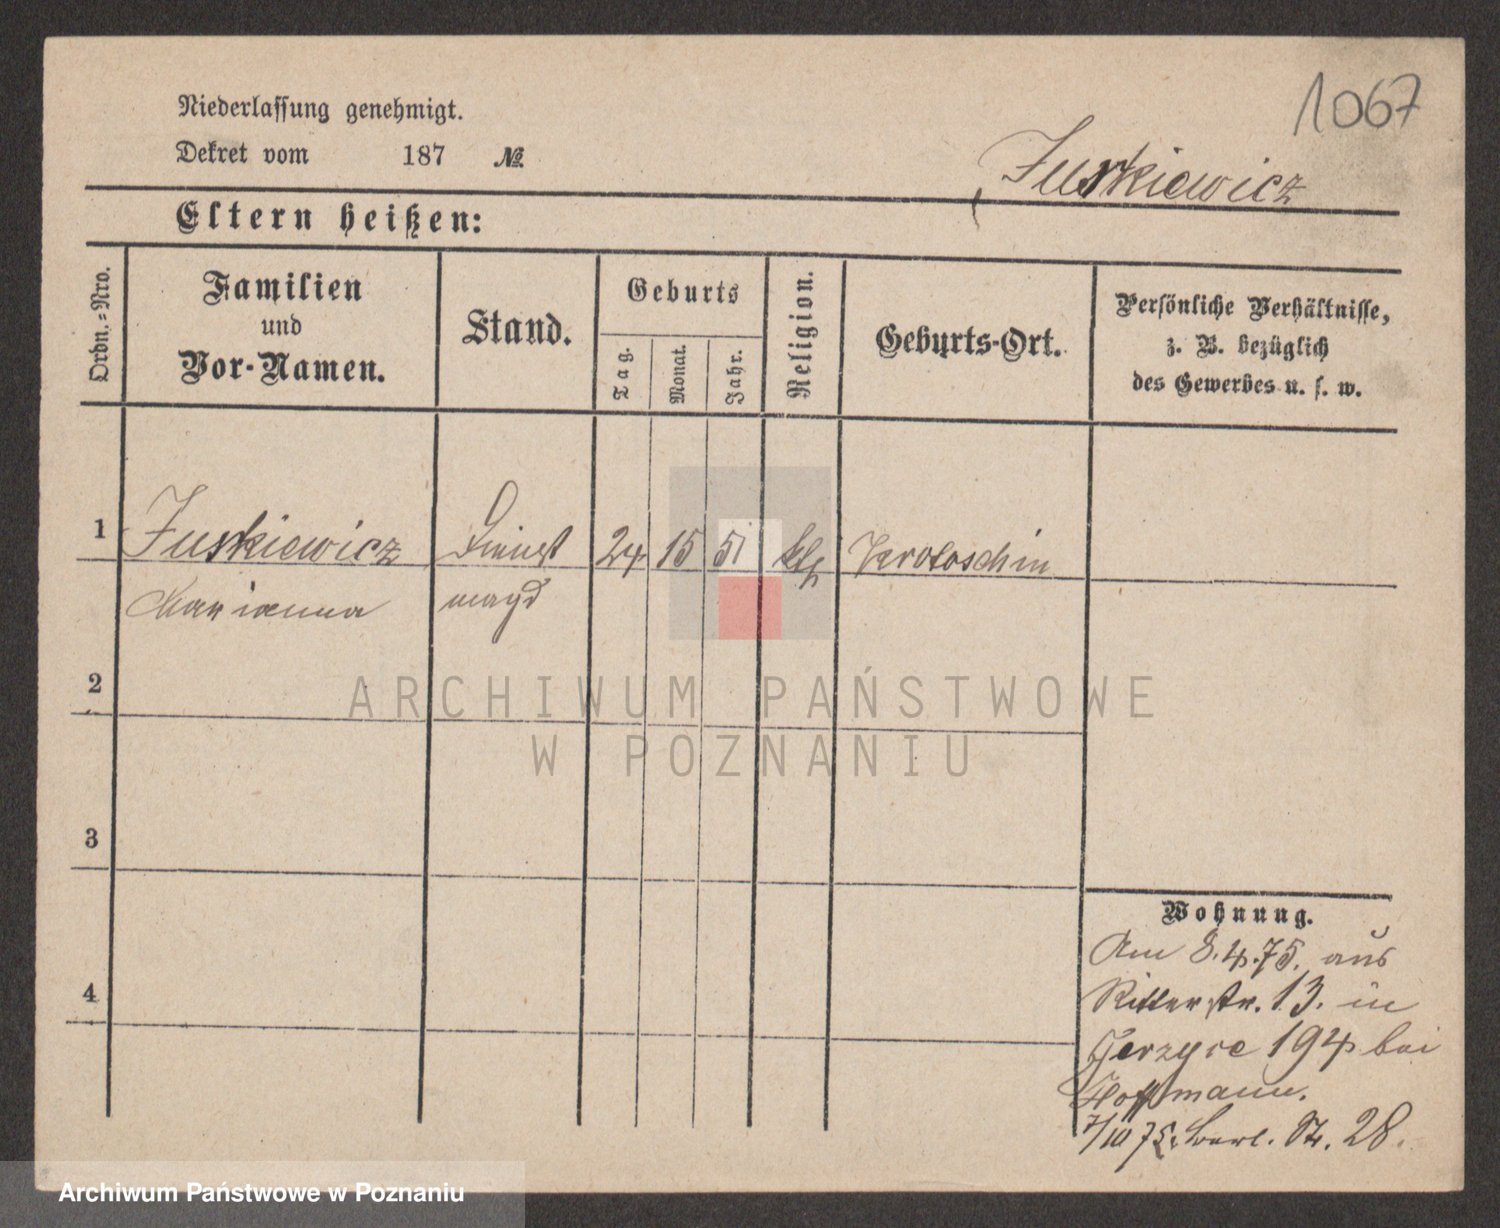 1067
Niederlassung genehmigt.
Dekret vom 187 №
Juskiewicz
Eltern heißen:
Ordn.=Nro.
Familien
und
Vor-Namen.
Stand.
Geburts
Tag.
Monat.
Jahr.
Religion.
Geburts-Ort.
Persönliche Verhältnisse,
z. B. bezüglich
des Gewerbes u. s. w.
1 Juskiewicz Dienst 24 15 51 kth Krotoschin
Marianna magd
2
3
4
Wohnung.
Am 8.4.75. aus
Ritterstr. 13. in
Jerzyce 194 bei
Hoffmann.
7/10 75. Berl. St. 28.
ARCHIWUM PAŃSTWOWE
W POZNANIU
Archiwum Państwowe w Poznaniu